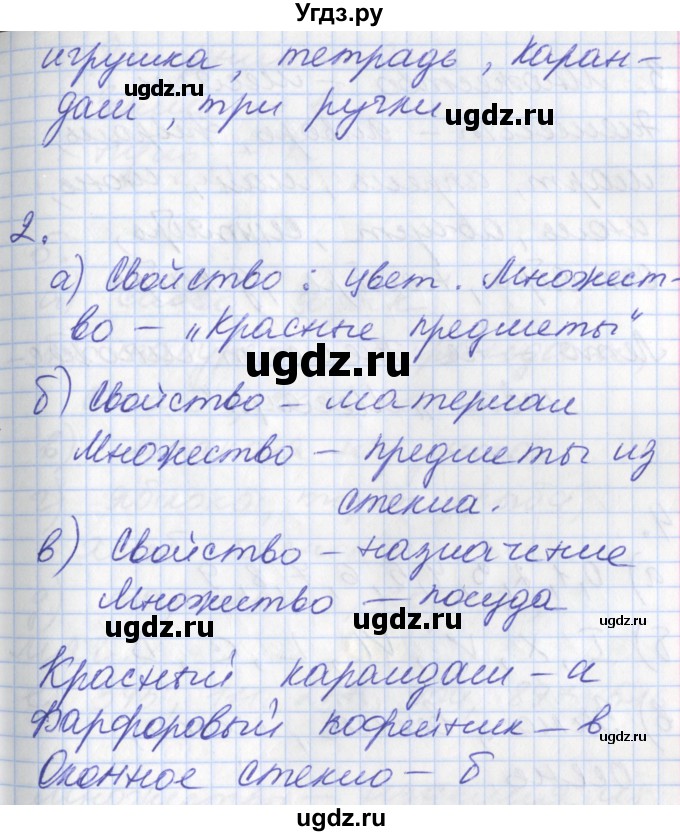 Угдз.ру
игрушка, тетрадь, каран-
даш, три ручки
2.
а) Свойство: цвет. Множест-
во – „Красные предметы“
б) Свойство – материал
Множество – предметы из
стекла.
в) Свойство – назначение
Множество – посуда
Красный карандаш – а
Фарфоровый кофейник – в
Оконное стекло – б
ugdz.ru
ugdz.ru
ugdz.ru
ugdz.ru
ugdz.ru
ugdz.ru
ugdz.ru
ugdz.ru
ugdz.ru